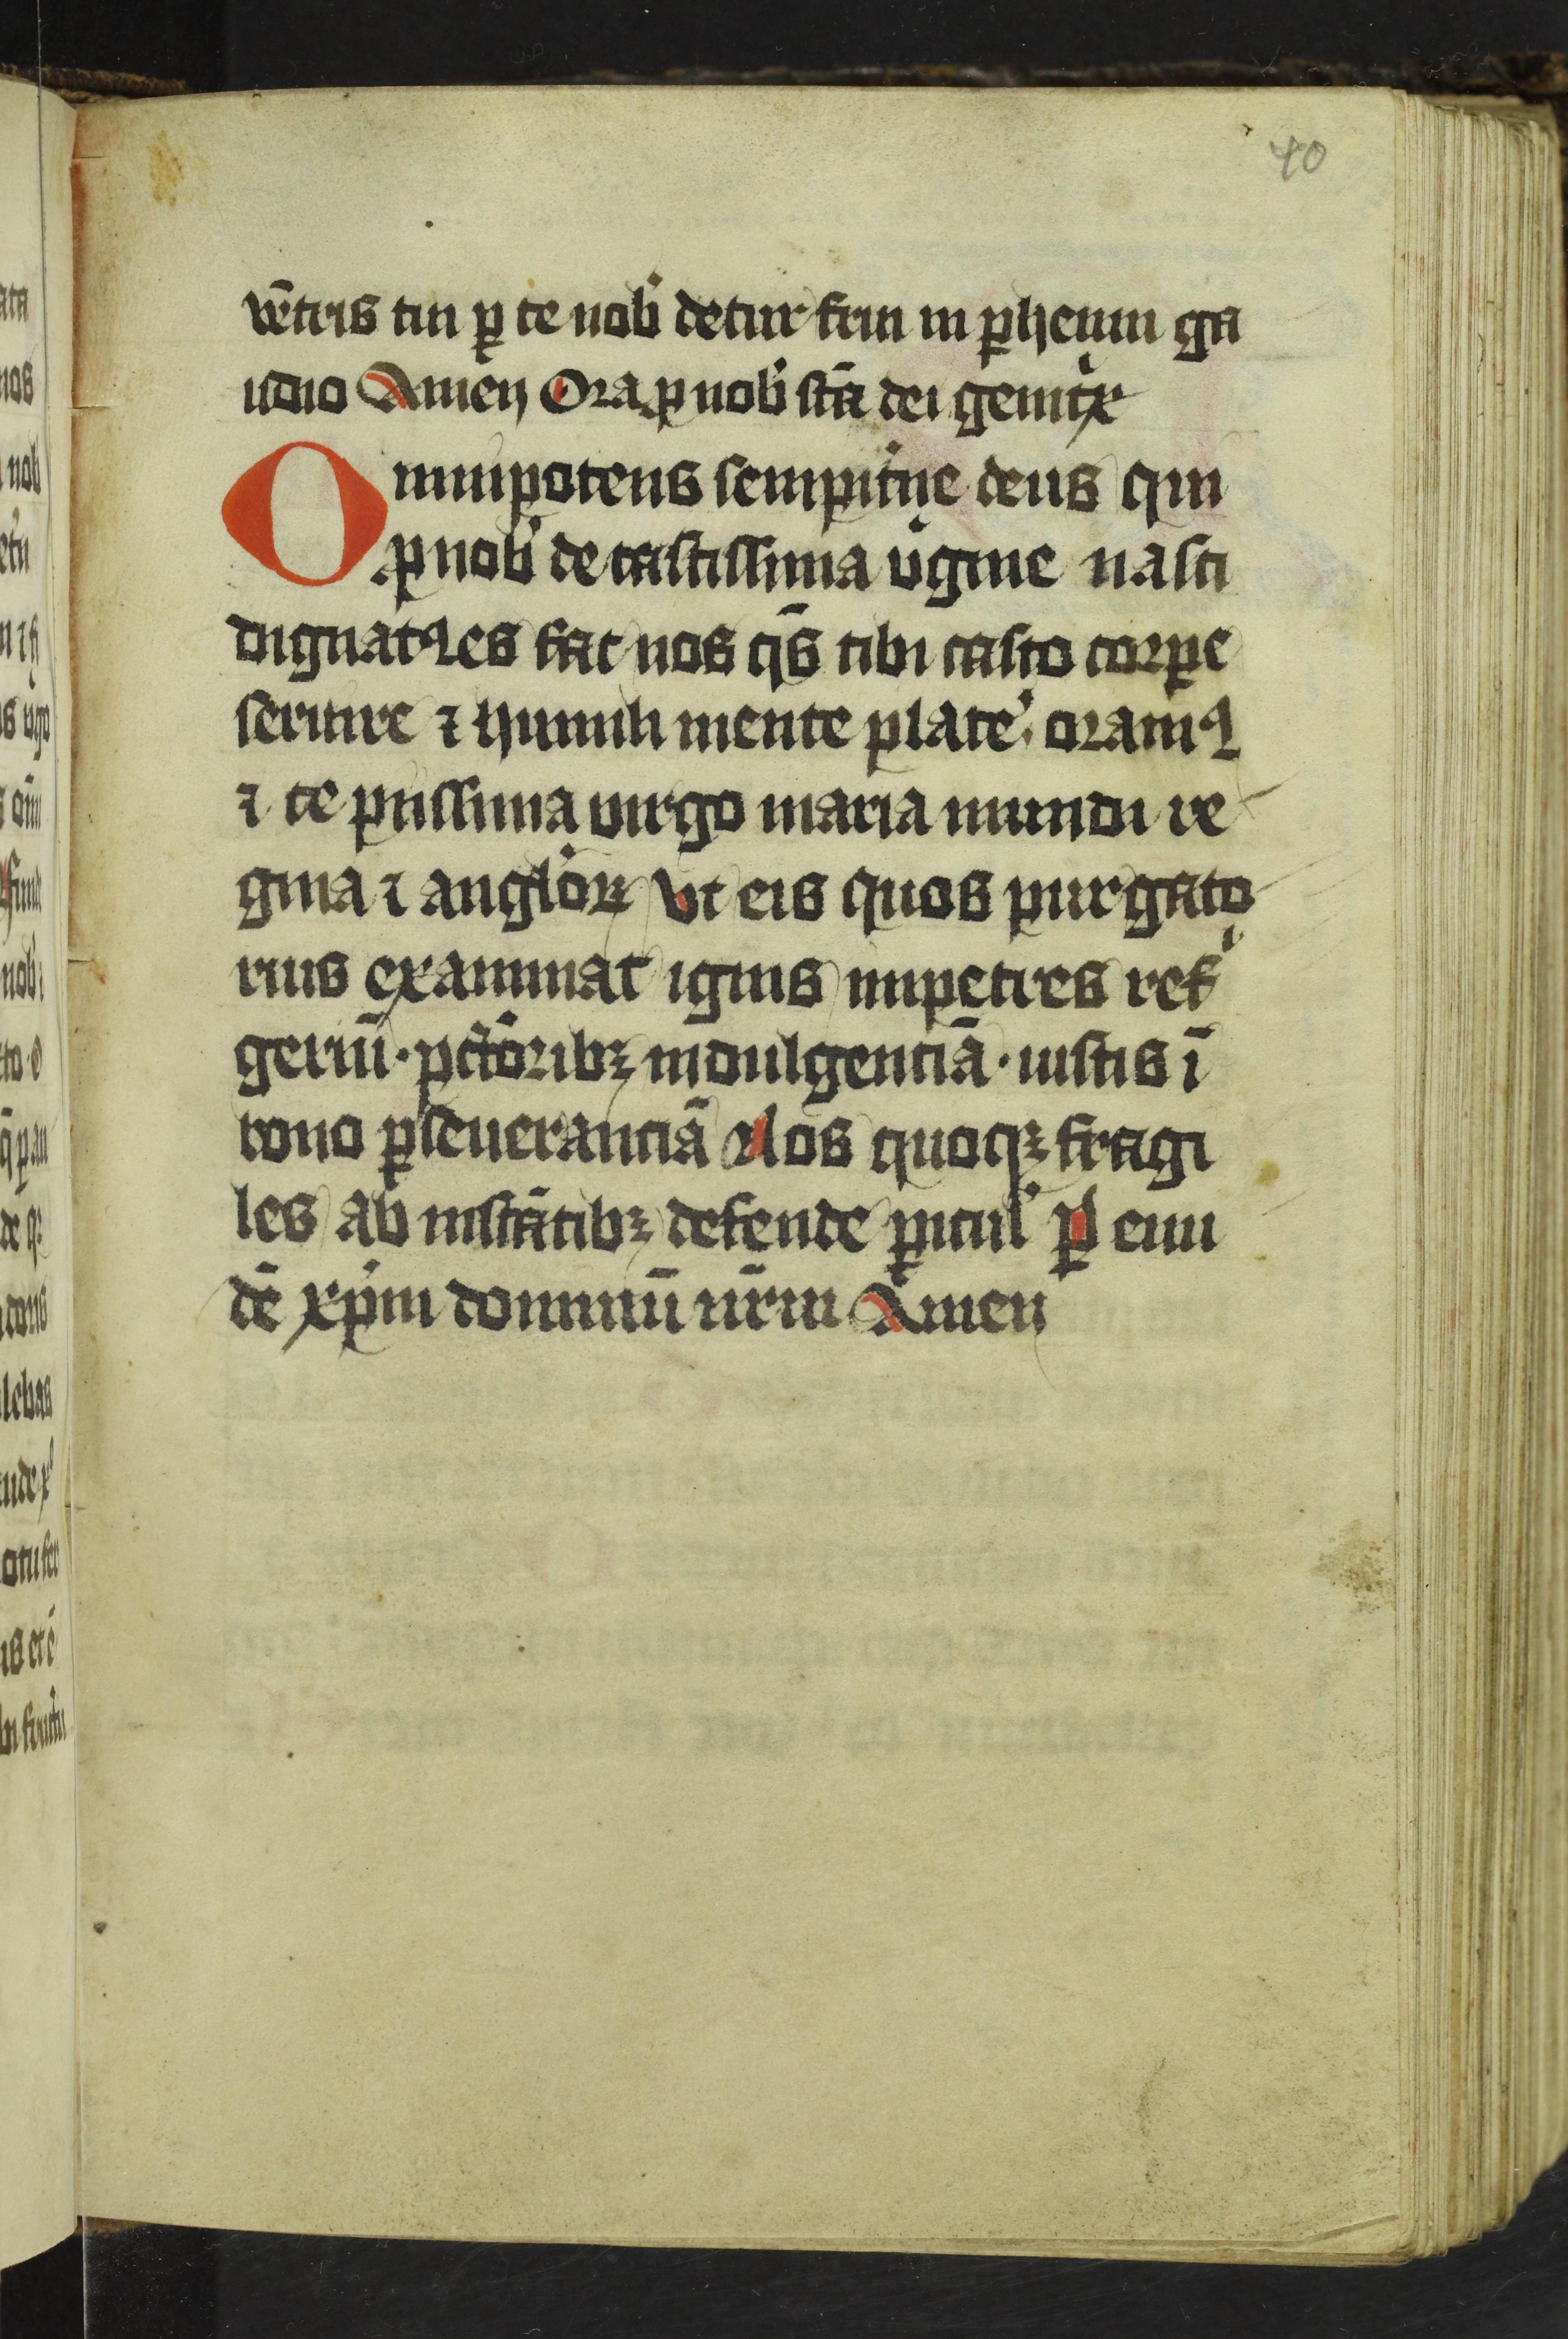 40
vētris tui ꝑ te nob̾ detur frui in ꝑhenni ga
udio Amen Ora ꝓ nob̾ sc̄ā dei genitͥx
Omnipotens sempit̾ne deus qui
ꝓ nob̾ de castissima v̾gine nasci
dignatꝰ es fac nos q̄s tibi casto corꝑe
seruire ⁊ humili mente place̾. oramꝰ
⁊ te piissima virgo maria mundi re
gina ⁊ angl̾oꝝ Vt eis quos purgato
rius examinat ignis impetres refͥ
geriū · pcc̄oribꝫ indulgenciā · iustis ī
bono ꝑseueranciā Nos quoqꝫ fragi
les ab instātibꝫ defende ꝑicul̾ Per eun
dē xp̄m dominū nr̄m Amen